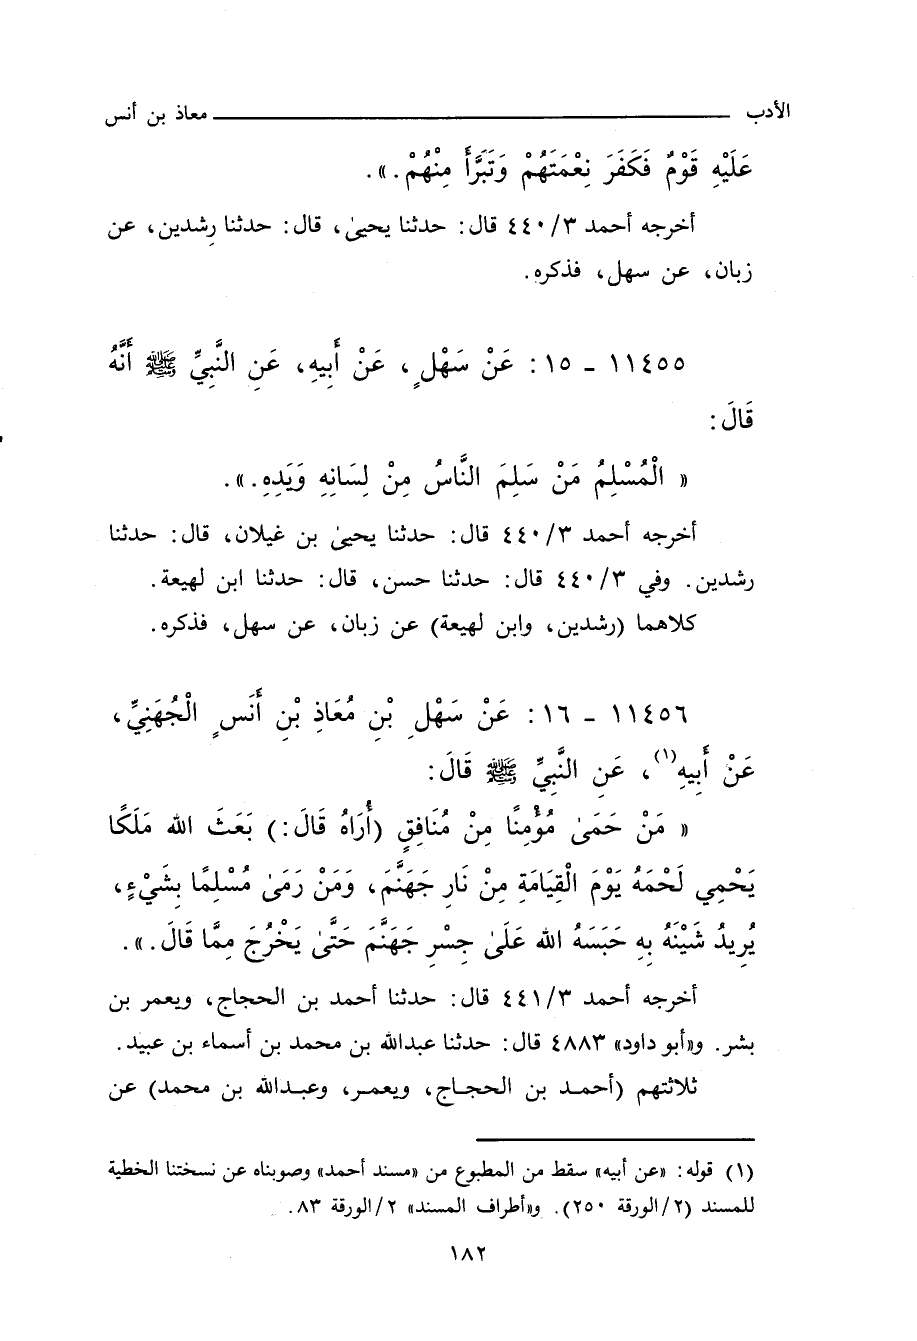 الأدب ــــــ معاذ بن أنس
عَلَيْهِ قَوْمٌ فَكَفَرَ نِعْمَتَهُمْ وَتَبَرَّأَ مِنْهُمْ . ».
أخرجه أحمد ٤٤٠/٣ قال: حدثنا يحيىٰ، قال: حدثنا رِشدين، عن
زبان، عن سهل، فذكره.
١١٤٥٥ - ١٥ : عَنْ سَهْلٍ، عَنْ أَبِيهِ، عَنِ النَّبِيِّ ﷺ أَنَّهُ
قَالَ:
« الْمُسْلِمُ مَنْ سَلِمَ النَّاسُ مِنْ لِسَانِهِ وَيَدِهِ. ».
أخرجه أحمد ٤٤٠/٣ قال: حدثنا يحيىٰ بن غيلان، قال: حدثنا
رشدين. وفي ٤٤٠/٣ قال: حدثنا حسن، قال: حدثنا ابن لهيعة.
كلاهما (رشدين، وابن لهيعة) عن زبان، عن سهل، فذكره.
١١٤٥٦ - ١٦ : عَنْ سَهْلِ بْنِ مُعَاذِ بْنِ أَنَسٍ الْجُهَنِيِّ،
عَنْ أَبِيهِ(١)، عَنِ النَّبِيِّ ﷺ قَالَ:
« مَنْ حَمَىٰ مُؤْمِنًا مِنْ مُنَافِقٍ (أُرَاهُ قَالَ:) بَعَثَ الله مَلَكًا
يَحْمِي لَحْمَهُ يَوْمَ الْقِيَامَةِ مِنْ نَارِ جَهَنَّمَ، وَمَنْ رَمَىٰ مُسْلِمًا بِشَيْءٍ،
يُرِيدُ شَيْنَهُ بِهِ حَبَسَهُ الله عَلَىٰ جِسْرِ جَهَنَّمَ حَتَّىٰ يَخْرُجَ مِمَّا قَالَ. ».
أخرجه أحمد ٤٤١/٣ قال: حدثنا أحمد بن الحجاج، ويعمر بن
بشر. و«أبو داود» ٤٨٨٣ قال: حدثنا عبدالله بن محمد بن أسماء بن عبيد.
ثلاثتهم (أحمد بن الحجاج، ويعمر، وعبدالله بن محمد) عن
(١) قوله: «عن أبيه» سقط من المطبوع من «مسند أحمد» وصوبناه عن نسختنا الخطية
للمسند (٢/الورقة ٢٥٠). و«أطراف المسند» ٢/الورقة ٨٣.
١٨٢